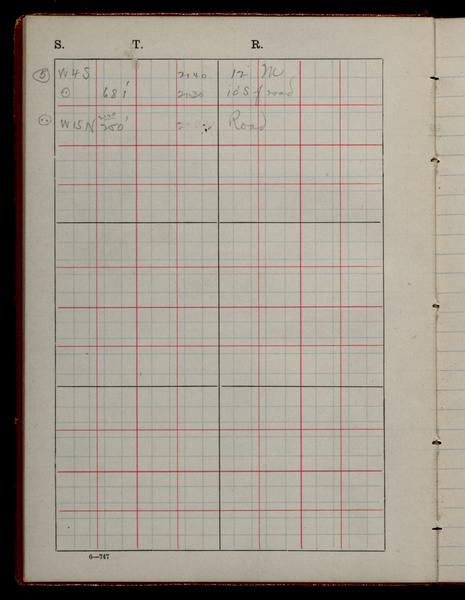 S. T. R.
5 W4S 2140 12 M
⊙ 681' 2130 10 S of road
W15N 250' Road
6—747